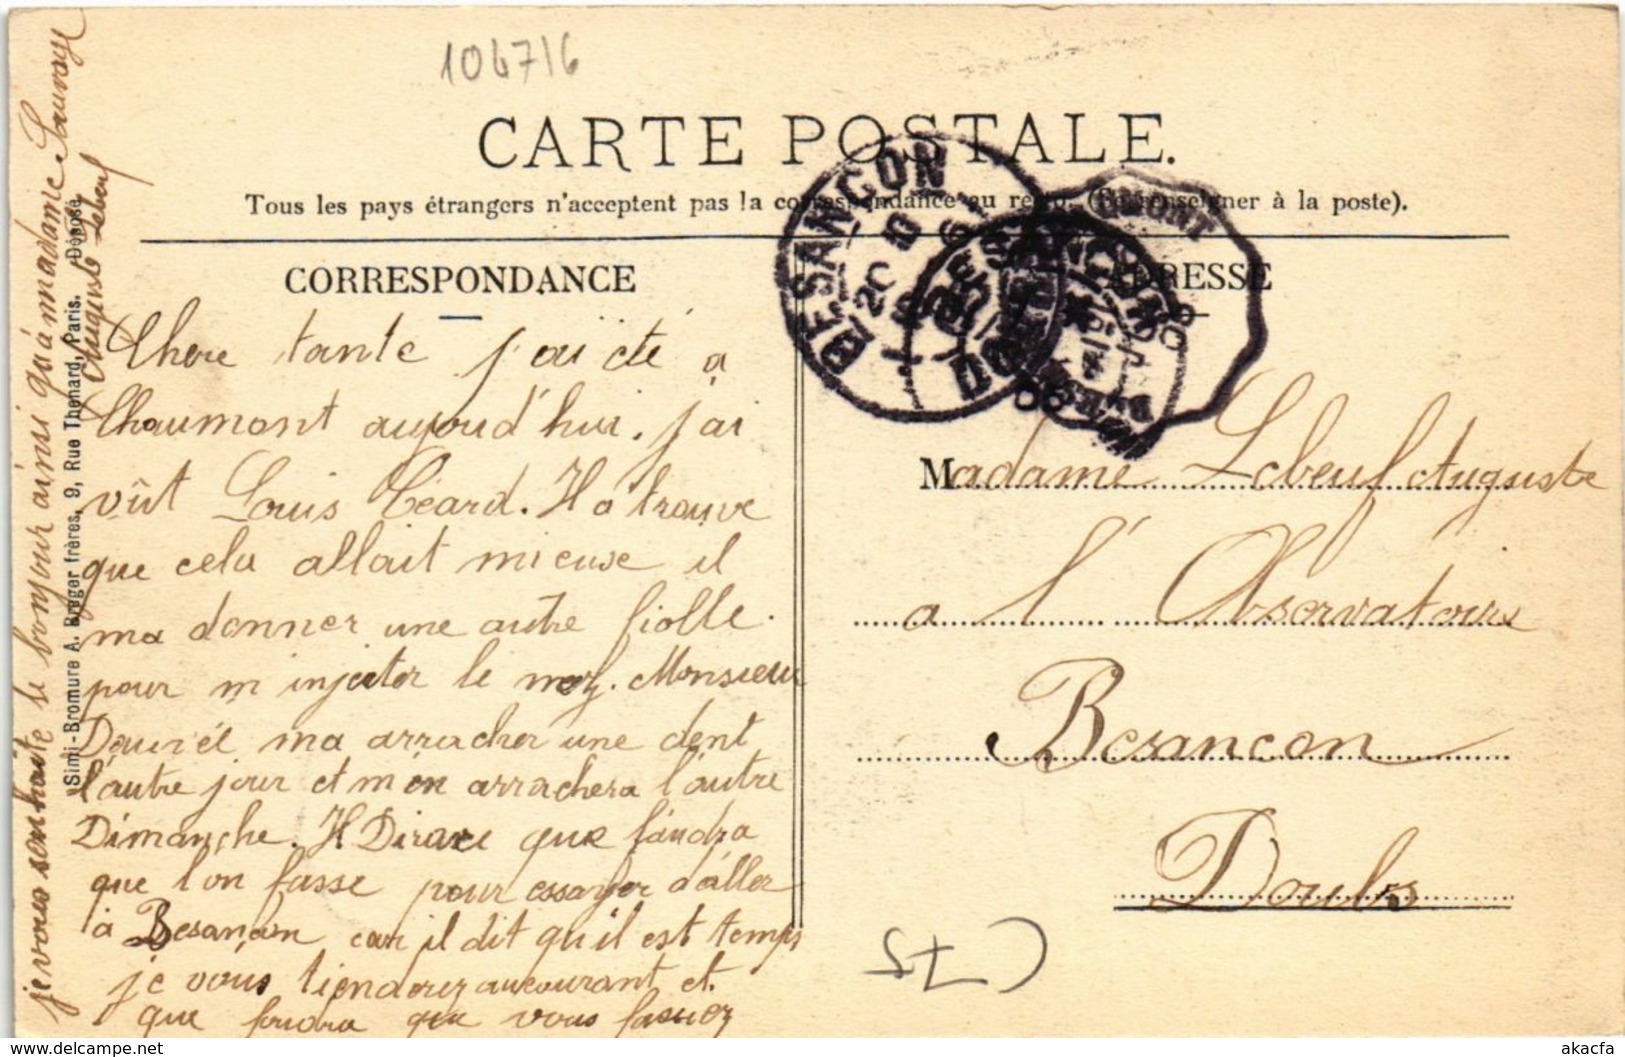 104716
CARTE POSTALE.
Tous les pays étrangers n'acceptent pas la correspondance au recto. (Se renseigner à la poste).
CORRESPONDANCE
ADRESSE
BESANÇON
DOUBS
Chere tante j'ai été a
Chaumont aujourd'hui. j'ai
vût Louis Téard. Il a trouve
que cela allait mieuse il
ma donner une autre fiolle.
pour m injecter le nez. Monsieur
ma arracher une dent
l'autre jour et m'en arrachera l'autre
Dimanche. Il Dirare que faudra
que l'on fasse pour essayer d'aller
à Besançon car il dit qu'il est temps
je vous tiendorez aucourant et
que foudra que vous fassiez
je vous souhaite le bonjour ainsi qu'á madame Sauvage
Auguste Lebeuf
Simi-Bromure A. Breger frères, 9, Rue Thenard, Paris. Déposé.
Madame Lebeuf Auguste
a l'Observatoire
Besancon
Doubs
C75
akacfa